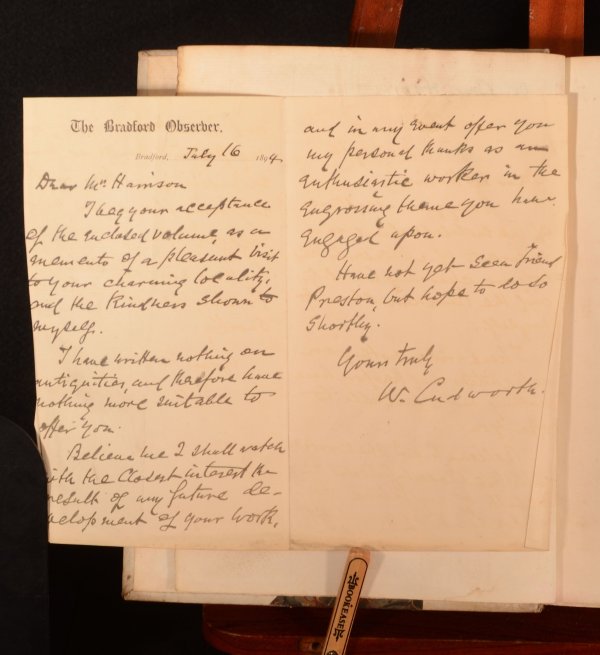 The Bradford Observer.
Bradford, July 16 1894
Dear Mr Harrison
I beg your acceptance
of the enclosed volume, as a
memento of a pleasant visit
to your charming locality,
and the kindness shown to
myself.
I have written nothing on
antiquities, and therefore have
nothing more suitable to
offer you.
Believe me I shall watch
with the closest interest the
result of any future de-
velopment of your work,
and in any event offer you
my personal thanks as an
enthusiastic worker in the
engrossing theme you have
engaged upon.
Have not yet seen friend
Preston, but hope to do so
shortly.
Yours truly
W. Cudworth.
BOOKEASE